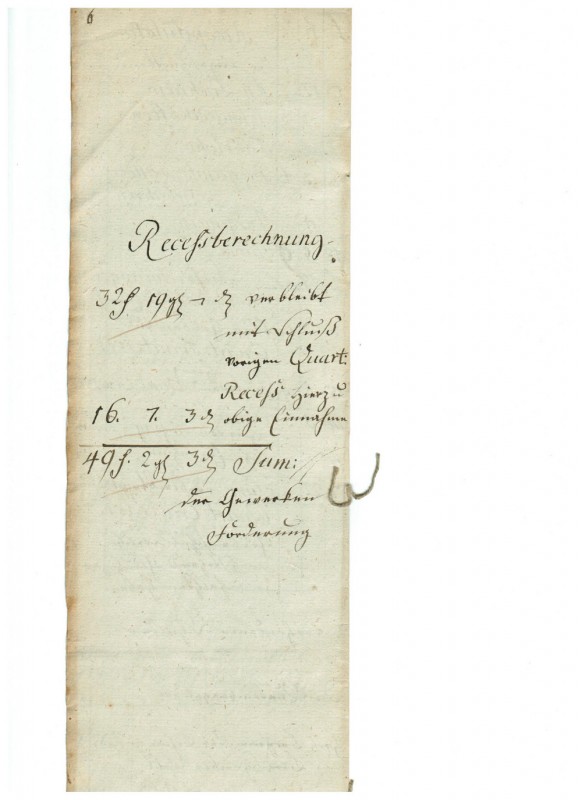 6
Recessberechnung.
32 f 19 gl – ₰ verbleibt
mit Schluß
vorigen Quart:
Recess hierzu
16. 7. 3 ₰ obige Einnahme
49 f. 2 gl 3 ₰ Sum:
der Gewerken
Förderung